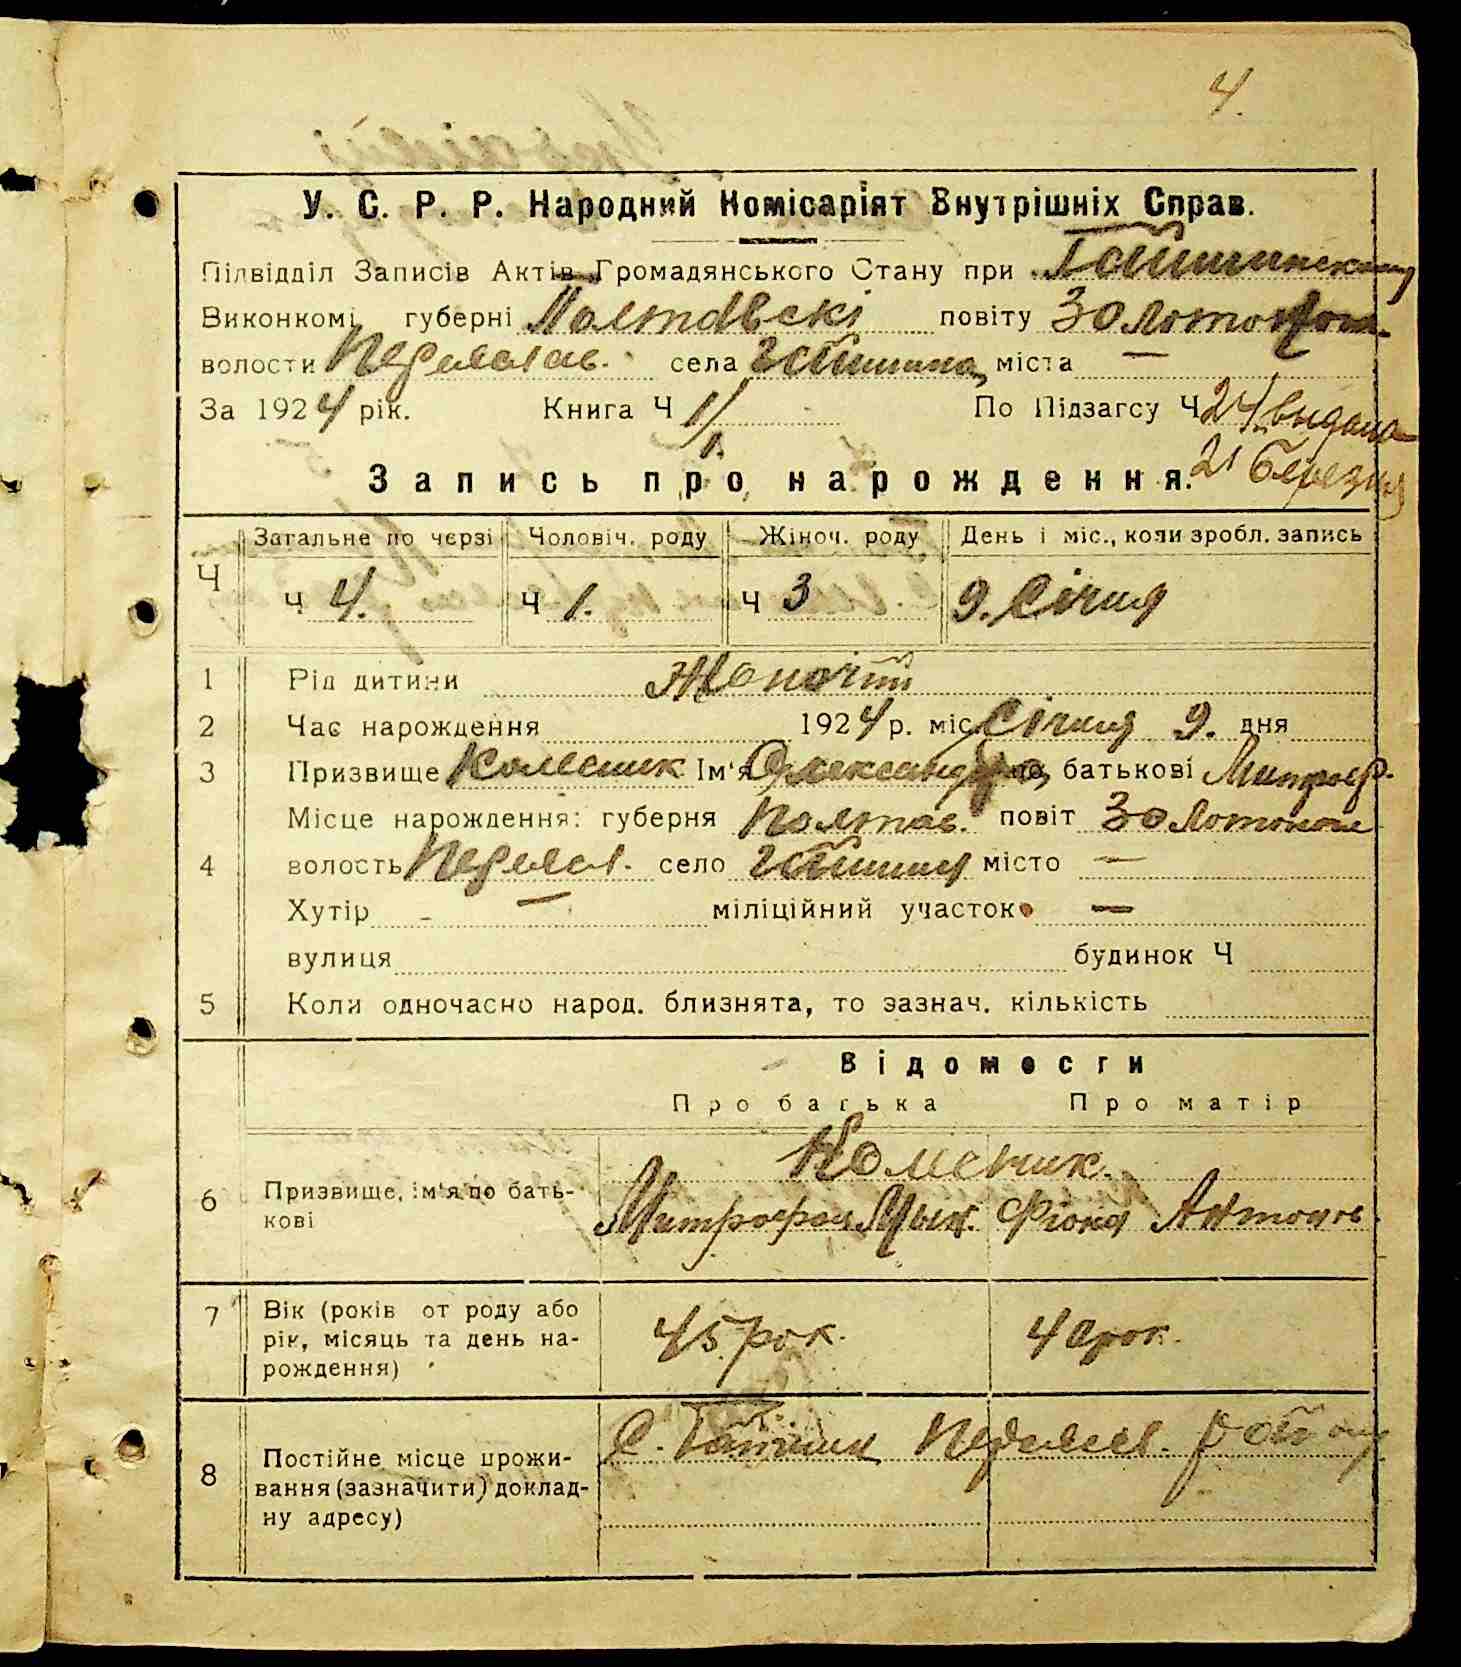 4.
У. С. Р. Р. Народний Комісаріят Внутрішніх Справ.
Підвідділ Записів Актів Громадянського Стану при Гайшинському
Виконкомі губерні Полтавскі повіту Золотонош.
волости Переяслав. села Гайшина, міста —
За 1924 рік. Книга Ч 1/1. По Підзагсу Ч 24. выдана
21 Березня
Запись про нарождення.
Ч Загальне по черзі Чоловіч. роду Жіноч. роду День і міс., коли зробл. запись
Ч 4. Ч 1. Ч 3 9. Січня
1 Рід дитини Жоночій
2 Час нарождення 1924 р. міс. Січня 9. дня
3 Призвище Колесник Ім'я Олександра по батькові Митроф.
Місце нарождення: губерня Полтав. повіт Золотонош
4 волость Переясл. село Гайшин місто —
Хутір - — міліційний участок —
вулиця будинок Ч
5 Коли одночасно народ. близнята, то зазнач. кількість
Відомости
Про батька Про матір
Колесник.
6 Призвище, ім'я по бать-
кові Митрофан Фіона Антонов
7 Вік (років от роду або
рік, місяць та день на-
рождення) 45 рок. 40 рок.
С. Гайшин Переясл. району
8 Постійне місце прожи-
вання (зазначити) доклад-
ну адресу)